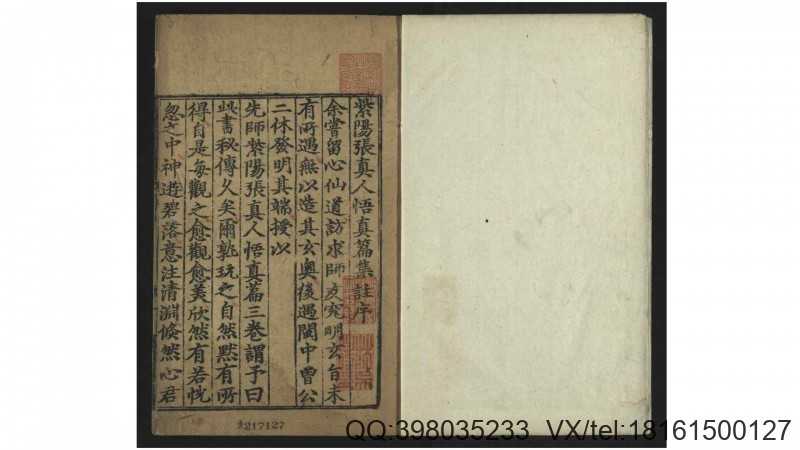 紫陽張真人悟真篇集註序
余嘗留心仙道訪求師友究明玄旨未
有所遇無以造其玄奥後遇閩中曹公
二休發明其端授以
先師紫陽張真人悟真篇三卷謂予曰
此書秘傳久矣爾孰玩之自然黙有所
得自是每觀之愈觀愈美欣然有若恍
忽之中神遊碧落意注清淵倏然心君
217127
QQ:398035233 VX/tel:18161500127